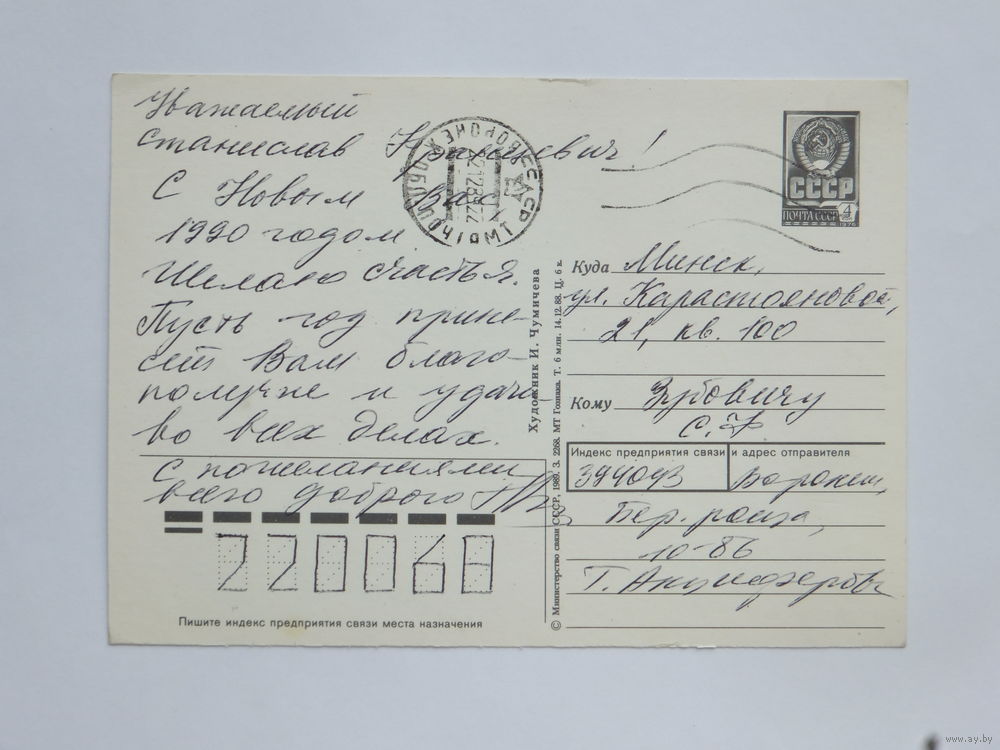 Уважаемый
Станислав !
С Новым Вас
1990 годом
Желаю счастья.
Пусть год прине-
сёт Вам благо-
получие и удачи
во всех делах.
с пожеланиями
всего доброго
220068
Пишите индекс предприятия связи места назначения
Художник И. Чумичева
© Министерство связи СССР, 1989. З. 2268. МТ Гознака. Т. 6 млн. 14.12.88. Ц. 6 к.
ВОРОНЕЖ
СССР
ПОЧТА СССР 4
Куда Минск,
ул. Карастояновой,
21, кв. 100
Кому Зубовичу
С. Ф
Индекс предприятия связи и адрес отправителя
394043 Воронеж,
Бер. роща,
10-86
www.ay.by